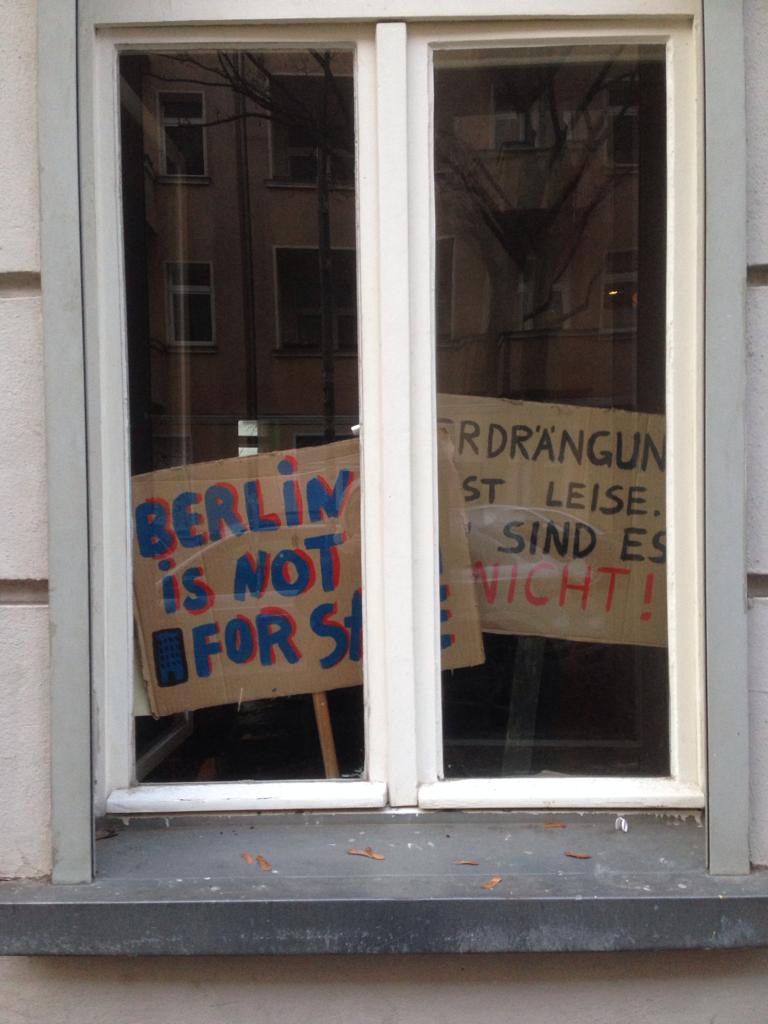 BERLIN
IS NOT
FOR SALE
ERDRÄNGUN
ST LEISE.
SIND ES
NICHT!